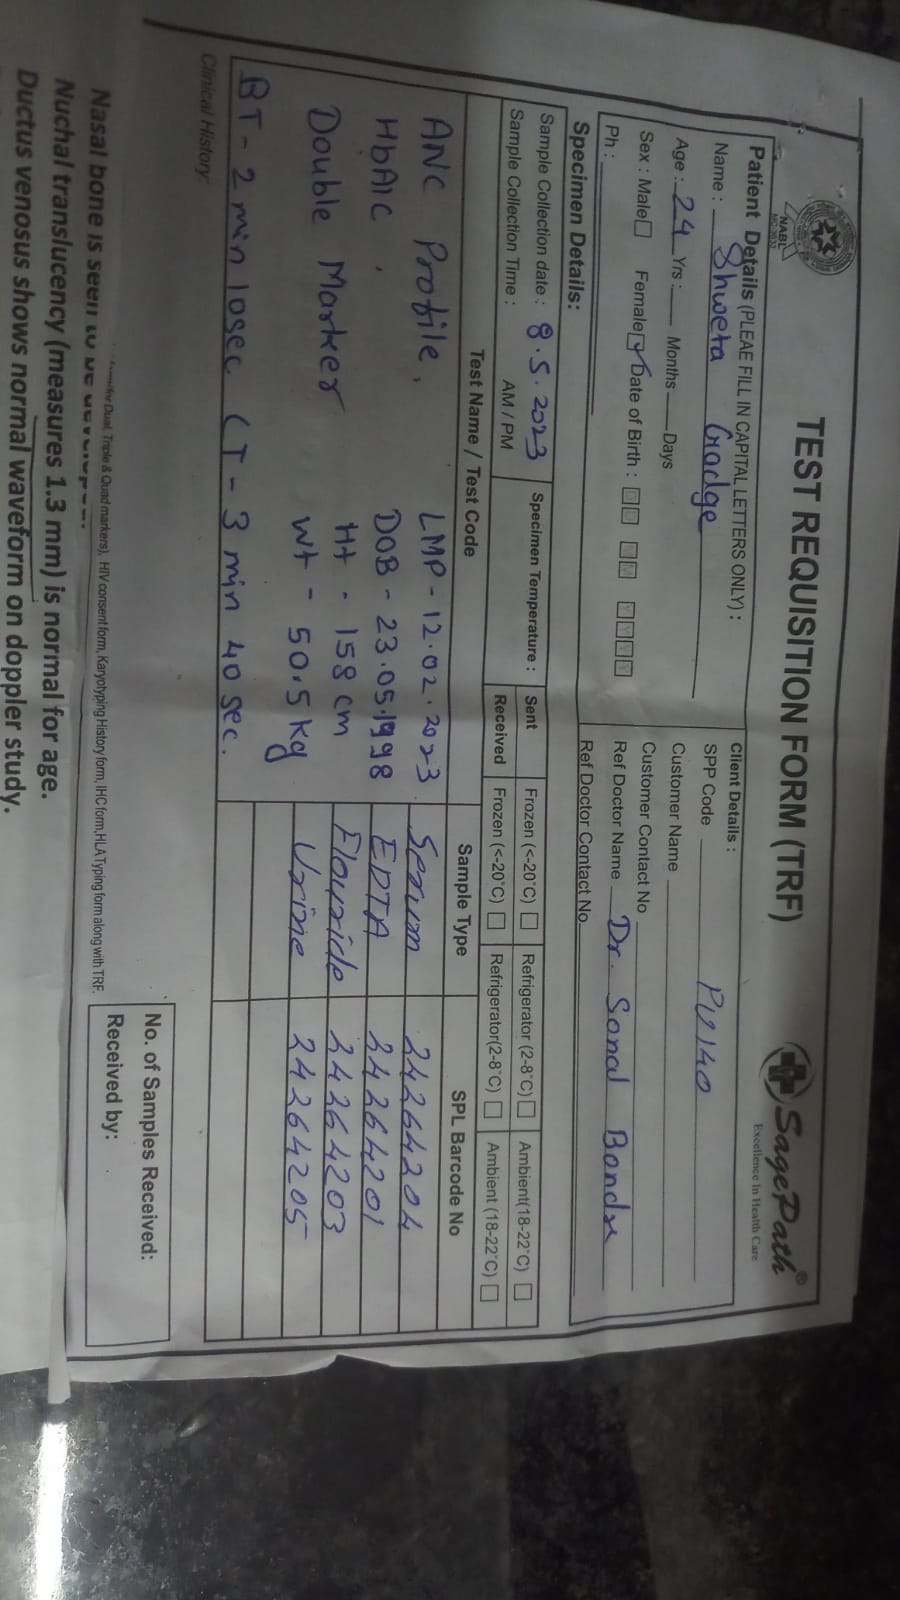 TEST REQUISITION FORM (TRF)
NABL
SagePath®
Excellence In Health Care
Patient Details (PLEAE FILL IN CAPITAL LETTERS ONLY) :
Name : Shweta Gadge
Age : 24 Yrs : Months Days
Sex : Male Female Date of Birth :
Ph :
Client Details :
SPP Code PU140
Customer Name
Customer Contact No
Ref Doctor Name Dr. Sonal Bondre
Ref Doctor Contact No
Specimen Details:
Sample Collection date : 8.5.2023
Sample Collection Time : AM / PM
Specimen Temperature :
Sent Frozen (<-20°C) Refrigerator (2-8°C) Ambient(18-22°C)
Received Frozen (<-20°C) Refrigerator(2-8°C) Ambient (18-22°C)
Test Name / Test Code Sample Type SPL Barcode No
ANC Profile, LMP - 12.02.2023 Serum 24264204
HbA1c, DOB - 23.05.1998 EDTA 24264201
Double Marker Ht - 158 cm Flouride 24264203
wt - 50.5 kg Urine 24264205
BT - 2 min 10sec CT - 3 min 40 sec.
Clinical History:
for Dual, Triple & Quad markers), HIV consent form, Karyotyping History form, IHC form,HLA Typing form along with TRF.
No. of Samples Received:
Received by:
Nasal bone is seen to be
Nuchal translucency (measures 1.3 mm) is normal for age.
Ductus venosus shows normal waveform on doppler study.